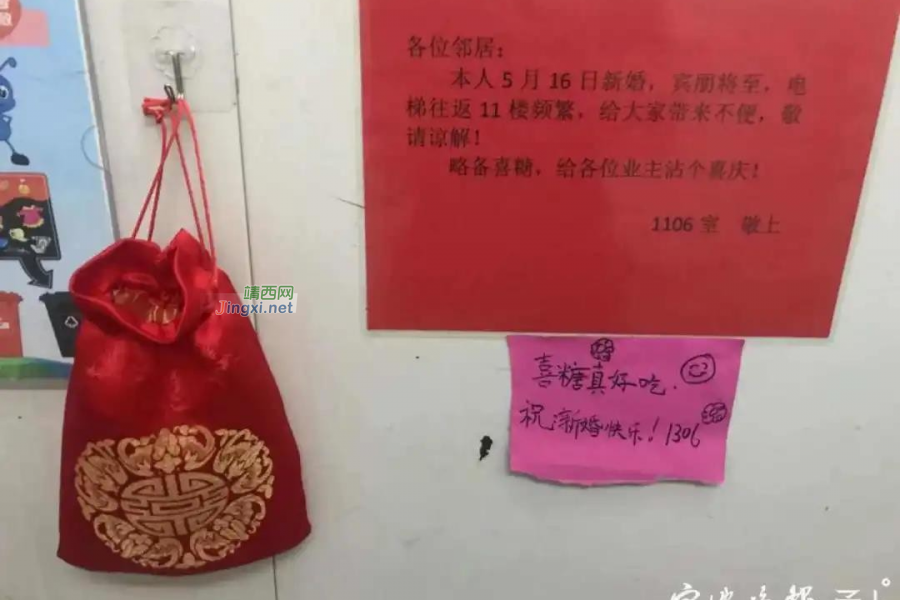 各位邻居：
本人5月16日新婚，宾朋将至，电
梯往返11楼频繁，给大家带来不便，敬
请谅解！
略备喜糖，给各位业主沾个喜庆！
1106室 敬上
靖西网
Jingxi.net
喜糖真好吃.
祝新婚快乐！1306